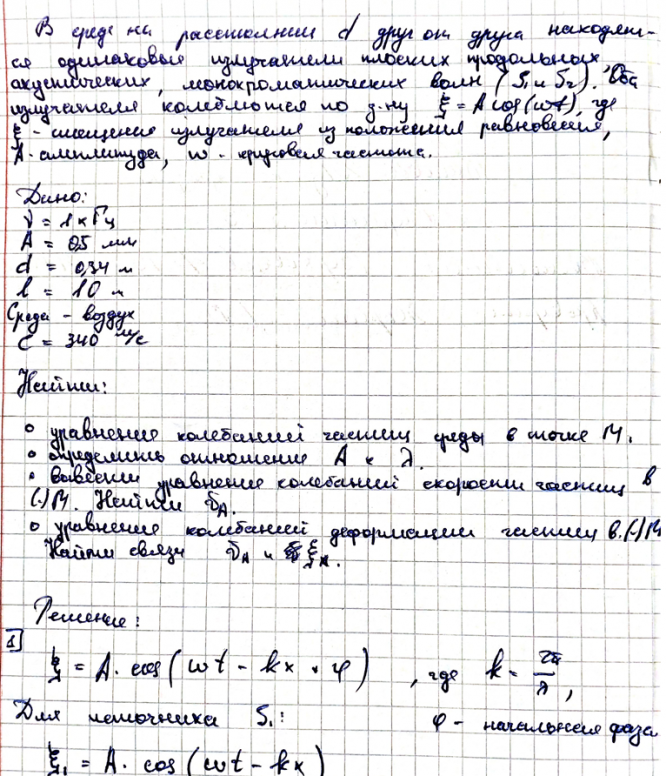 В среде на расстоянии d друг от друга находят-
ся одинаковые излучатели плоских продольных,
акустических, монохроматических волн (S₁ и S₂). Оба
излучателя колеблются по з-ну ξ = A cos(ωt), где
ξ - смещение излучателя из положения равновесия,
A - амплитуда, ω - круговая частота.
Дано:
ν = 1 кГц
A = 0,5 мм
d = 0,34 м
l = 10 м
Среда - воздух
C = 340 м/с
Найти:
• уравнение колебаний частиц среды в точке M.
• определить отношение A к λ.
• вывести уравнение колебаний скорости частиц в
(·) M. Найти v_A.
• уравнение колебаний деформации частиц в (·) M
Найти связь v_A и ξ_A.
Решение:
1
ξ = A · cos(ωt - kx + φ), где k = 2π/λ,
Для источника S₁: φ - начальная фаза
ξ₁ = A · cos(ωt - kx)